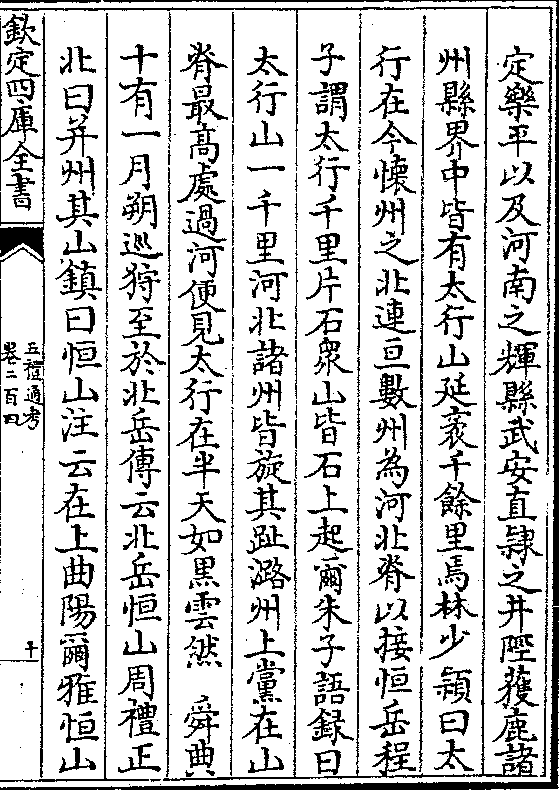 定樂平以及河南之輝縣武安直隸之井陘蕕鹿諸
州縣界中皆有太行山延袤千餘里焉林少頴曰太
行在今懷州之北連亘數州為河北脊以接恒岳程
子謂太行千里片石衆山皆石上起爾朱子語録曰
太行山一千里河北諸州皆旋其趾潞州上黨在山
脊最高處過河便見太行在半天如黒雲然　舜典
十有一月朔巡狩至於北岳傳云北岳恒山周禮正
北曰并州其山鎮曰恒山注云在上曲陽爾雅恒山
欽定四庫全書
五禮通考
卷二百四
十